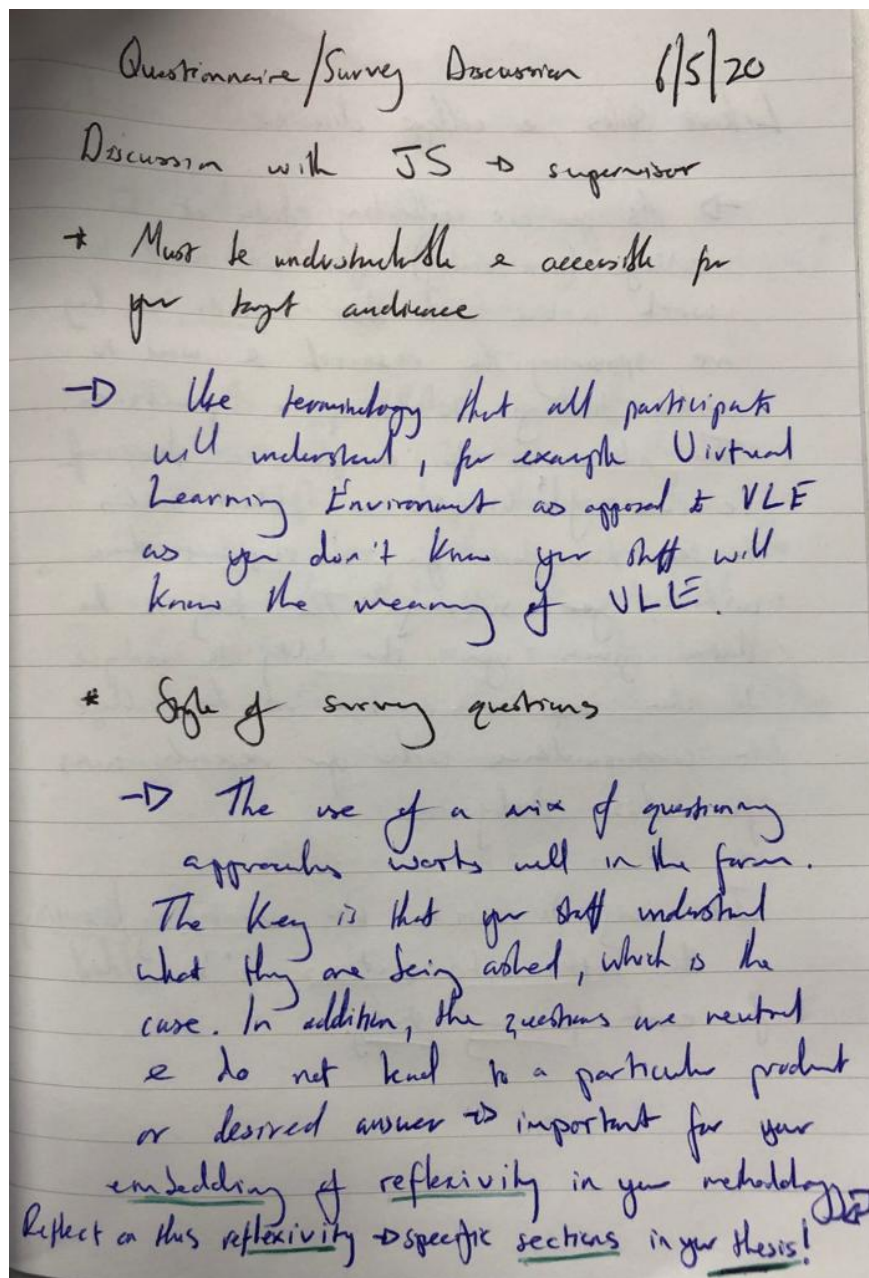 Questionnaire/Survey Discussion 6/5/20
Discussion with JS → supervisor
* Must be understandable & accessible for
your target audience
→ Use terminology that all participants
will understand, for example Virtual
Learning Environment as opposed to VLE
as you don't know your staff will
know the meaning of VLE.
* Style of survey questions
→ The use of a mix of questioning
approaches works well in the form.
The key is that your staff understand
what they are being asked, which is the
case. In addition, the questions are neutral
& do not lend to a particular product
or desired answer → important for your
embedding of reflexivity in your methodology
Reflect on this reflexivity → specific sections in your thesis!